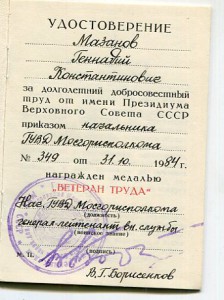 УДОСТОВЕРЕНИЕ
Мазанов
Геннадий
Константинович
за долголетний добросовестный
труд от имени Президиума
Верховного Совета СССР
приказом начальника
ГУВД Мосгорисполкома
№ 349 от 31.10. 1984 г.
награжден медалью
"ВЕТЕРАН ТРУДА"
Нач. ГУВД Мосгорисполкома
(должность)
генерал-лейтенант вн. службы
(воинское звание)
М. П.
В.Г. Борисенков